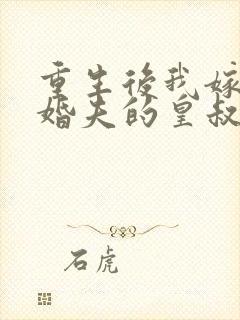 重生後我嫁
婚夫的皇叔
石虎